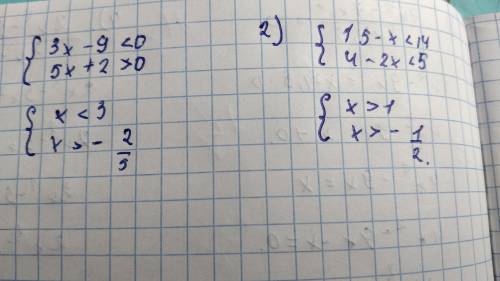 3x - 9 < 0
5x + 2 > 0
x < 3
x > - 2/5
2) 15 - x < 14
4 - 2x < 5
x > 1
x > - 1/2.